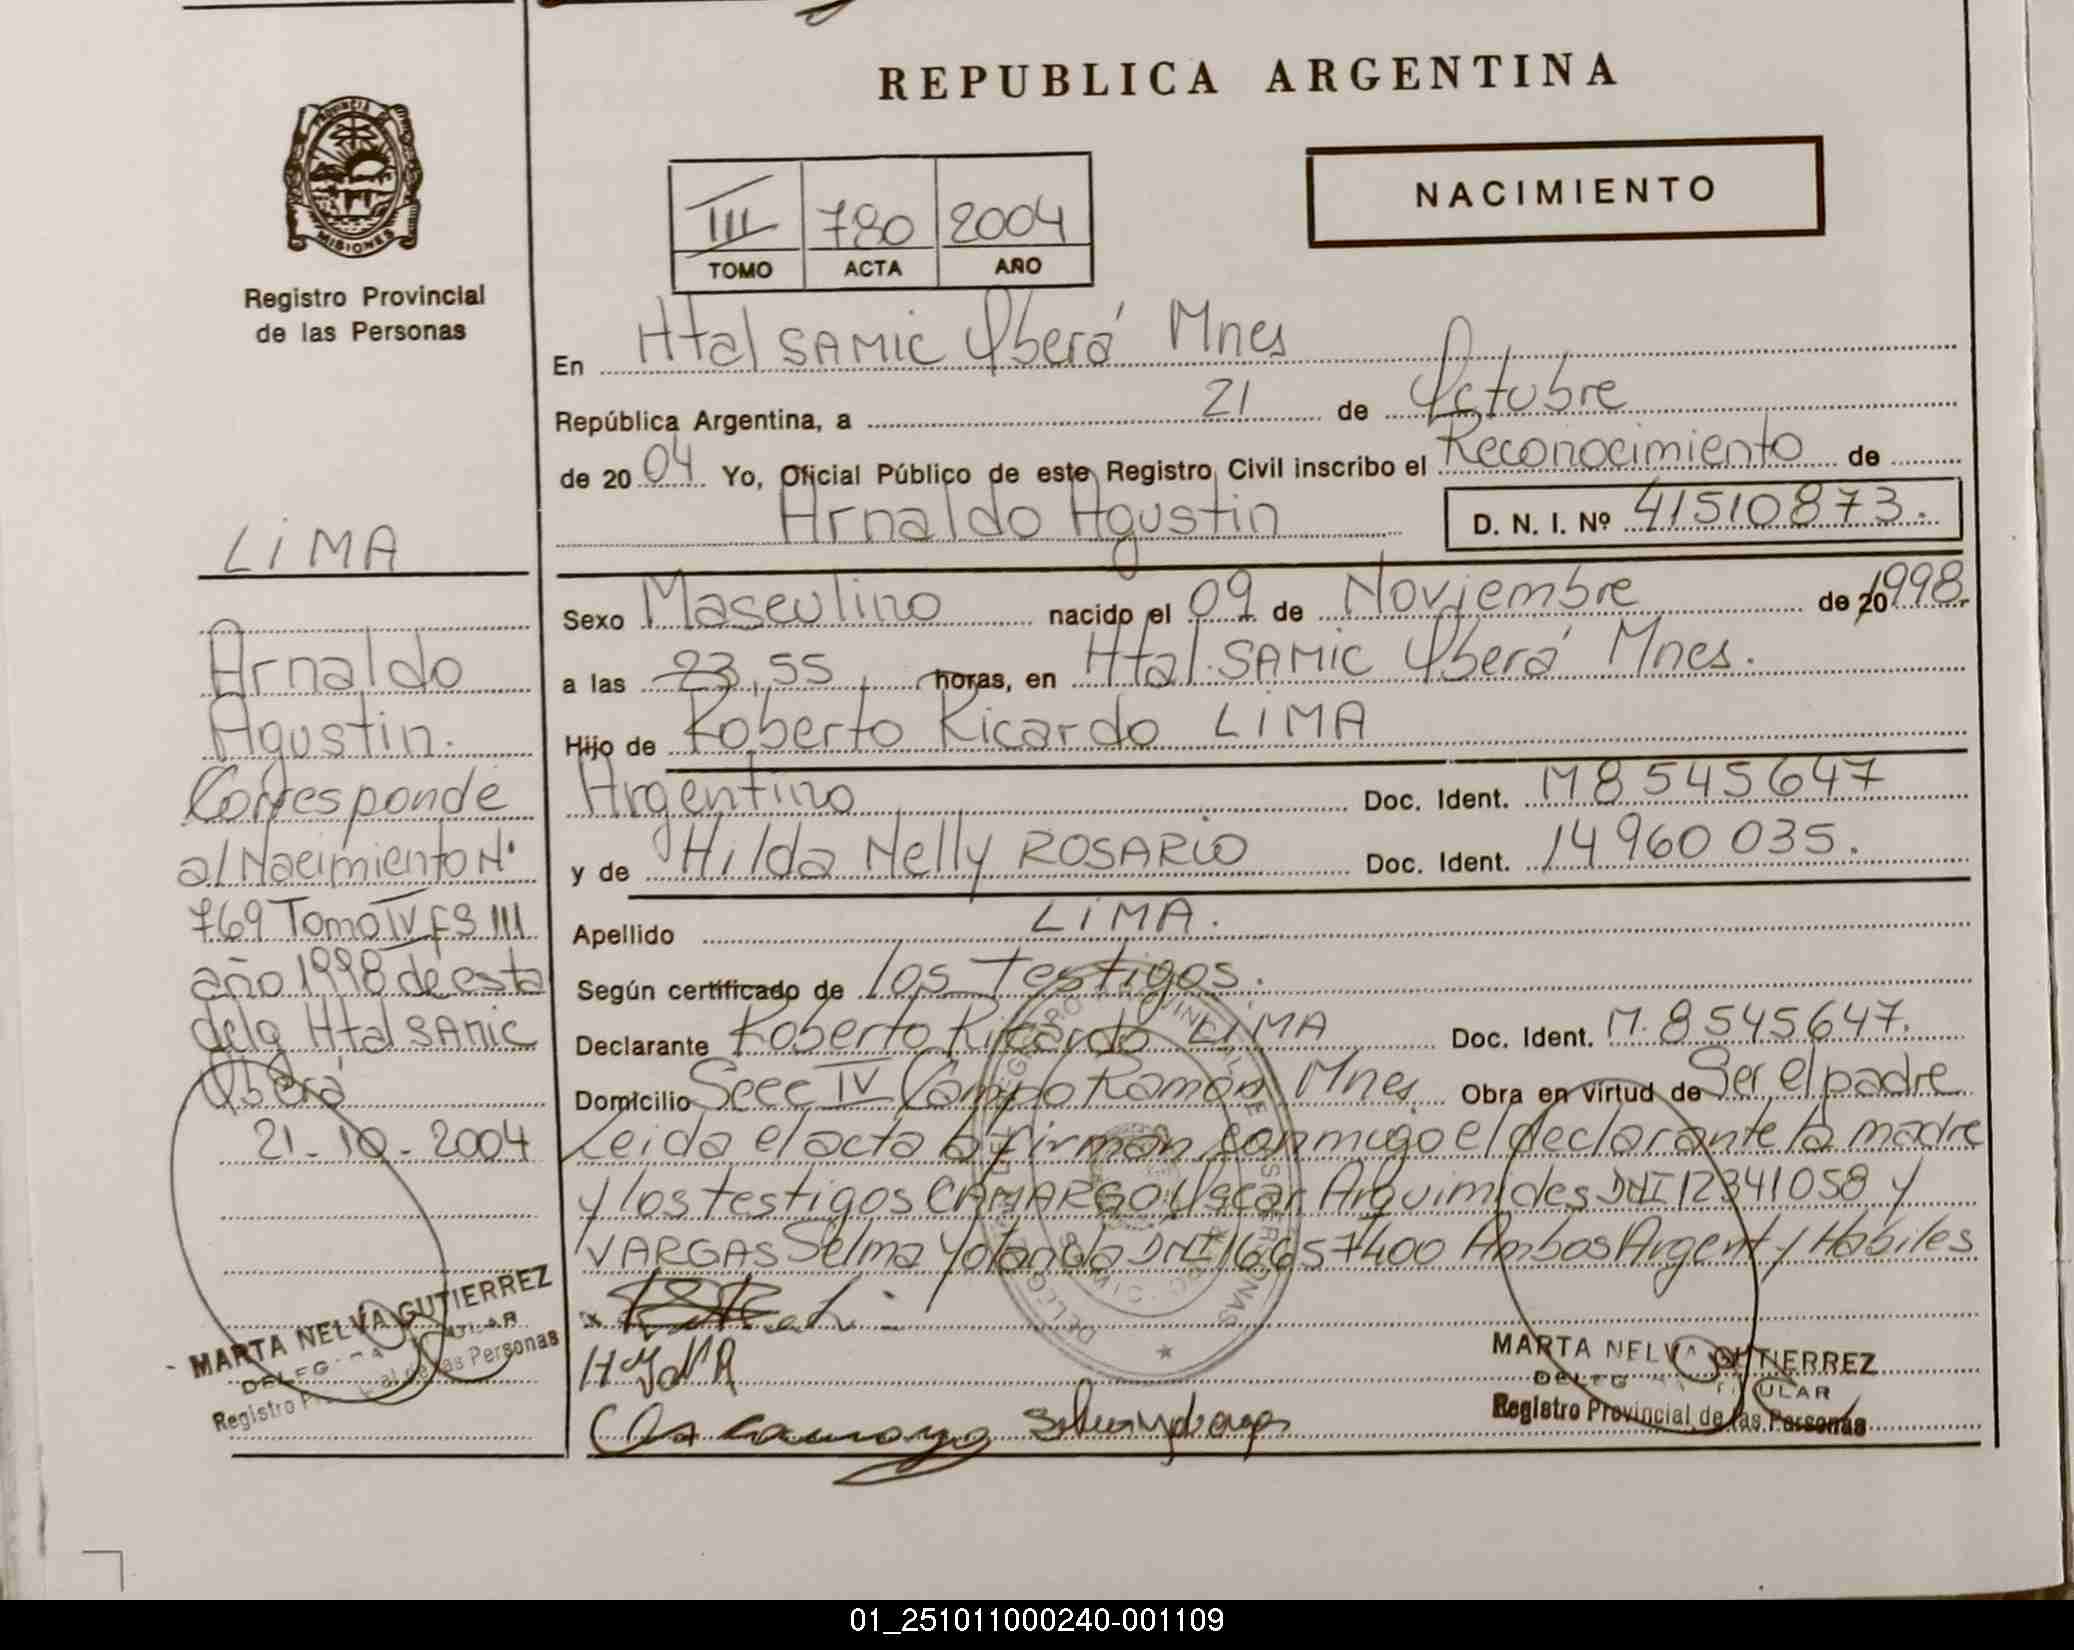 REPUBLICA ARGENTINA
PROVINCIA DE
MISIONES
Registro Provincial
de las Personas
III 780 2004
TOMO ACTA AÑO
NACIMIENTO
En Htal SAMIC Oberá Mnes
República Argentina, a 21 de Octubre
de 2004 Yo, Oficial Público de este Registro Civil inscribo el Reconocimiento de
Arnaldo Agustin D. N. I. Nº 41510873.
Sexo Masculino nacido el 09 de Noviembre de 20 1998.
a las 23,55 horas, en Htal. SAMIC Oberá Mnes.
Hijo de Roberto Ricardo LIMA
Argentino Doc. Ident. M 8545647
y de Hilda Nelly ROSARIO Doc. Ident. 14960035.
Apellido LIMA.
Según certificado de los Testigos.
Declarante Roberto Ricardo LIMA Doc. Ident. M. 8545647.
Domicilio Secc IV Campo Ramón Mnes Obra en virtud de Ser el padre
Leida el acta la firman conmigo el declarante la madre
y los testigos CAMARGO Oscar Arquimides DNI 12341058 y
VARGAS Selma Yolanda DNI 16657400 Ambos Argent y Habiles
MARTA NELVA GUTIERREZ
DELEGADA TITULAR
Registro Provincial de las Personas
LIMA
Arnaldo
Agustin.
Corresponde
al Nacimiento Nº
769 Tomo IV FS III
año 1998 de esta
delg Htal SAMIC
Oberá
21-10-2004
MARTA NELVA GUTIERREZ
DELEGADA TITULAR
Registro Provincial de las Personas
01_251011000240-001109